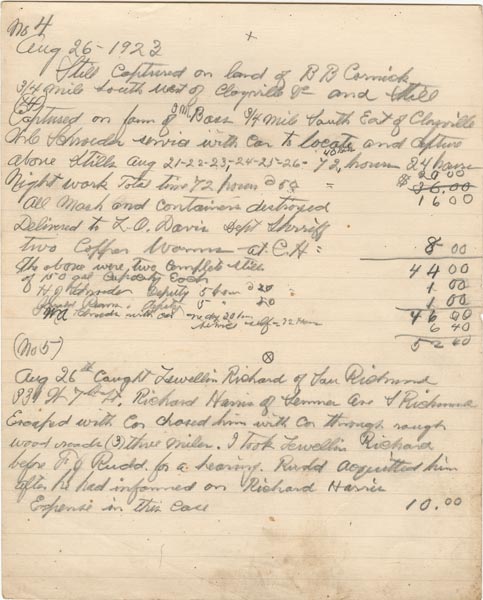 No 4
Aug 26-1923
Still Captured on land of B B Cornick
3/4 mile South West of Clayville Va and Still
(4) Captured on farm of Bass 3/4 mile South East of Clayville
Schroeder service with Car to locate and capture
above Stills Aug 21-22-23-24-25-26- 72 hours 24 hours
Night work Total time 72 hours
$ 20.00
36.00
16 00
All Mash and Containers destroyed
Delivered to L. O. Davis Dept Sheriff
two Copper Worms at C.H. = 8 00
The above were two Complete Stills 44 00
of 150 gal Capacity Each
H J Schroeder Deputy 5 hour 20 1 00
Deputy 5 " 20 1 00
Schroeder with car 46 00
6 40
52 40
(No 5)
Aug 26th Caught Lewellin Richard of Sou Richmond
W 7th St. Richard Harris of Semmes Ave S Richmond
Escaped with Car chased him with Car through rough
wood roads (3) three miles. I took Lewellin Richard
before F J Rudd for a hearing. Rudd acquitted him
after he had informed on Richard Harris
Expense in this Case 10.00